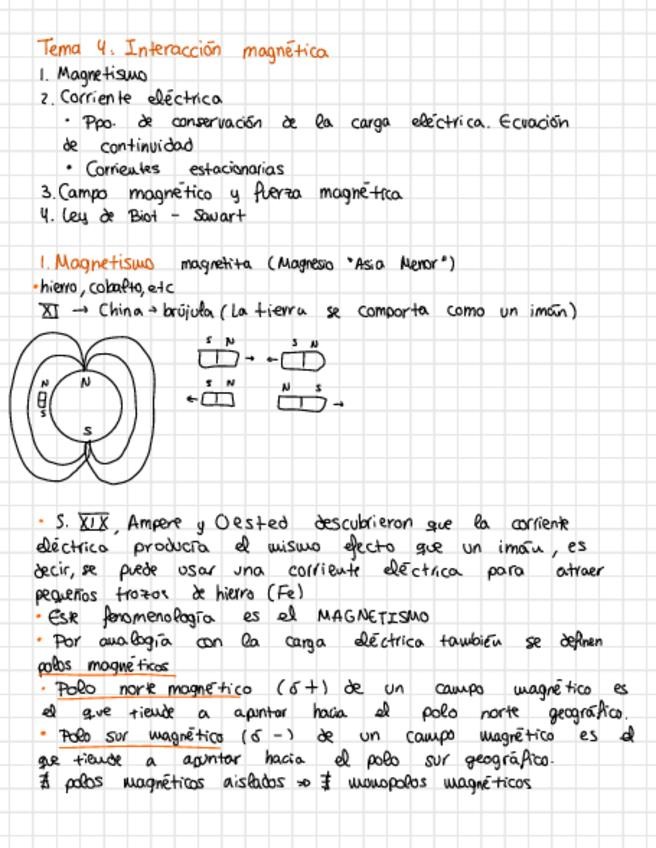 Tema 4: Interacción magnética
1. Magnetismo
2. Corriente eléctrica
• Ppo. de conservación de la carga eléctrica. Ecuación
de continuidad
• Corrientes estacionarias
3. Campo magnético y fuerza magnética
4. Ley de Biot - Savart
1. Magnetismo magnetita (Magnesio "Asia Menor")
• hierro, cobalto, etc
XI → China → brújula (La tierra se comporta como un imán)
S N → ← S N
N N S N N S
S ← →
S
• S. XIX, Ampere y Oested descubrieron que la corriente
eléctrica producía el mismo efecto que un imán, es
decir, se puede usar una corriente eléctrica para atraer
pequeños trozos de hierro (Fe)
• Este fenomenología es el MAGNETISMO
• Por analogía con la carga eléctrica también se definen
polos magnéticos
• Polo norte magnético (δ+) de un campo magnético es
el que tiende a apuntar hacia el polo norte geográfico.
• Polo sur magnético (δ -) de un campo magnético es el
que tiende a apuntar hacia el polo sur geográfico.
∄ polos magnéticos aislados ⇒ ∄ monopolos magnéticos